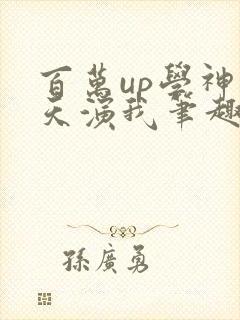 百萬up學神
天演我筆趣
孫廣勇